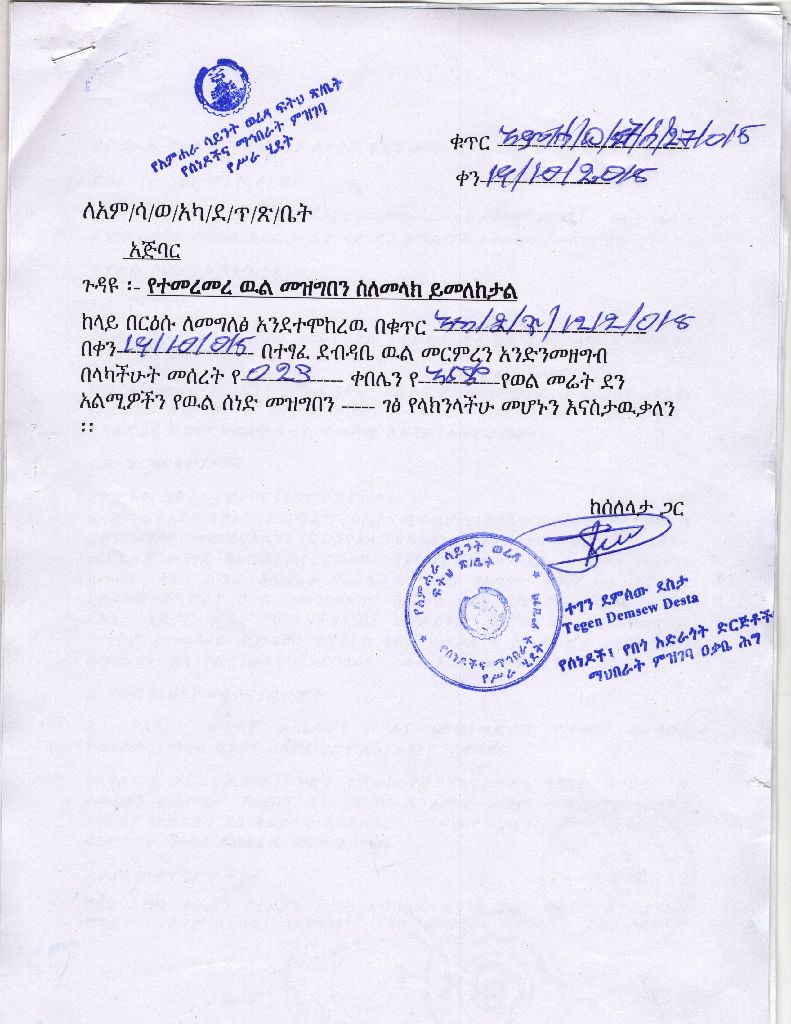 የአምሐራ ሳይንት ወረዳ ፍትህ ጽ/ቤት
የሰነዶችና ማኅበራት ምዝገባ
የሥራ ሂደት
ቁጥር 27/015
ቀን 19/10/2015
ለአም/ሳ/ወ/አካ/ደ/ጥ/ጽ/ቤት
አጅባር
ጉዳዩ ፡- የተመረመረ ዉል መዝግበን ስለመላክ ይመለከታል
ከላይ በርዕሱ ለመግለፅ እንደተሞከረዉ በቁጥር 1212/015
በቀን 19/10/015 በተፃፈ ደብዳቤ ዉል መርምረን እንድንመዘግብ
በላካችሁት መሰረት የ 023 ቀበሌን የ የወል መሬት ደን
አልሚዎችን የዉል ሰነድ መዝግበን ----- ገፅ የላክንላችሁ መሆኑን እናስታዉቃለን
፡፡
ከሰለላታ ጋር
የአምሐራ ሳይንት ወረዳ
ፍትህ ጽ/ቤት
የሰነዶችና ማኅበራት
የሥራ ሂደት
ተገን ደምሰው ደስታ
Tegen Demsew Desta
የሰነዶች፣ የበጎ አድራጎት ድርጅቶች
ማህበራት ምዝገባ ዐቃቤ ሕግ